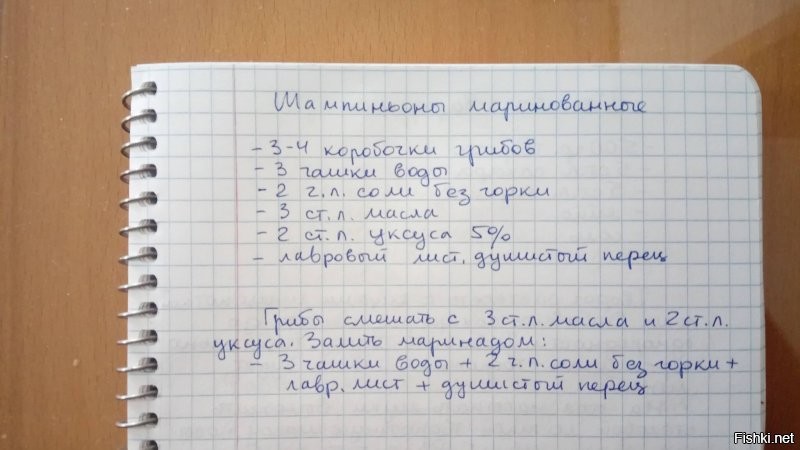 Шампиньоны маринованные
- 3-4 коробочки грибов
- 3 чашки воды
- 2 ч.л. соли без горки
- 3 ст.л. масла
- 2 ст.л. уксуса 5%
- лавровый лист, душистый перец
Грибы смешать с 3 ст.л. масла и 2 ст.л.
уксуса. Залить маринадом:
- 3 чашки воды + 2 ч.л. соли без горки +
лавр. лист + душистый перец
Fishki.net